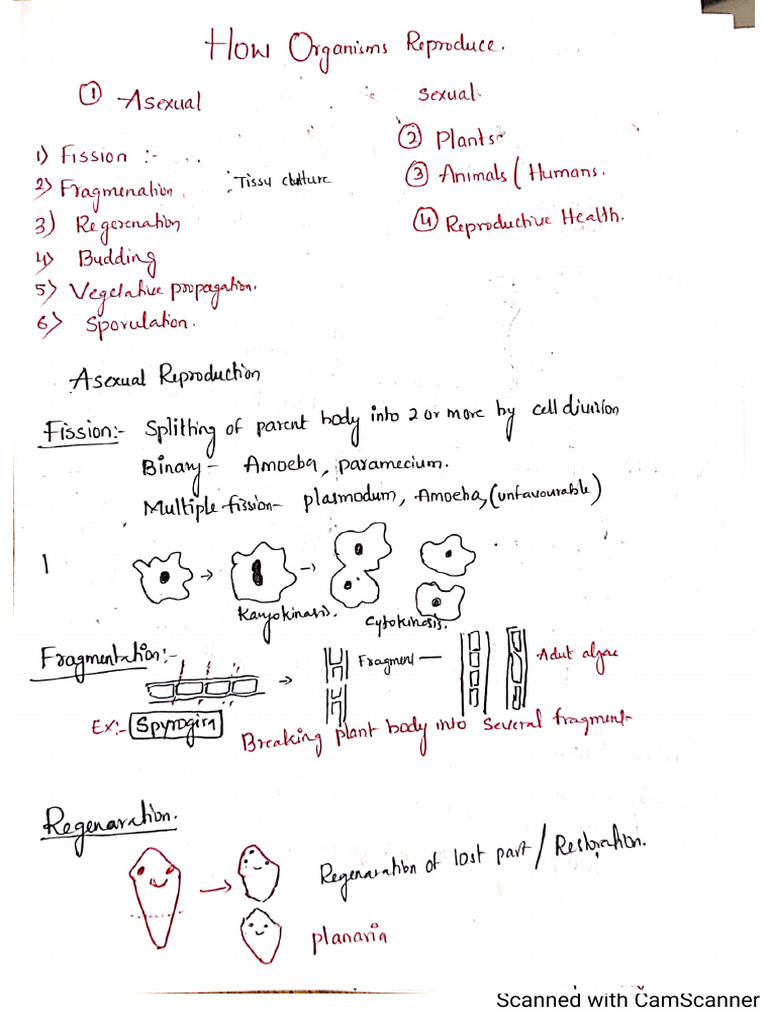 How Organisms Reproduce.
① Asexual
1) Fission :- ...
2) Fragmenation.
: Tissu culture
3) Regerenation
4) Budding
5) Vegetative propagation.
6) Sporulation.
Sexual.
② Plants
③ Animals / Humans.
④ Reproductive Health.
Asexual Reproduction
Fission:- Splitting of parent body into 2 or more by cell division
Binary - Amoeba, paramecium.
Multiple fission - plasmodum, Amoeba, (unfavourable)
Karyokinasis.
Cytokinosis.
Fragmentation:-
Fragment
Adut algae
Ex:- Spyrogira
Breaking plant body into several fragment
Regenaration.
Regenaration of lost part / Restoration.
planaria
Scanned with CamScanner